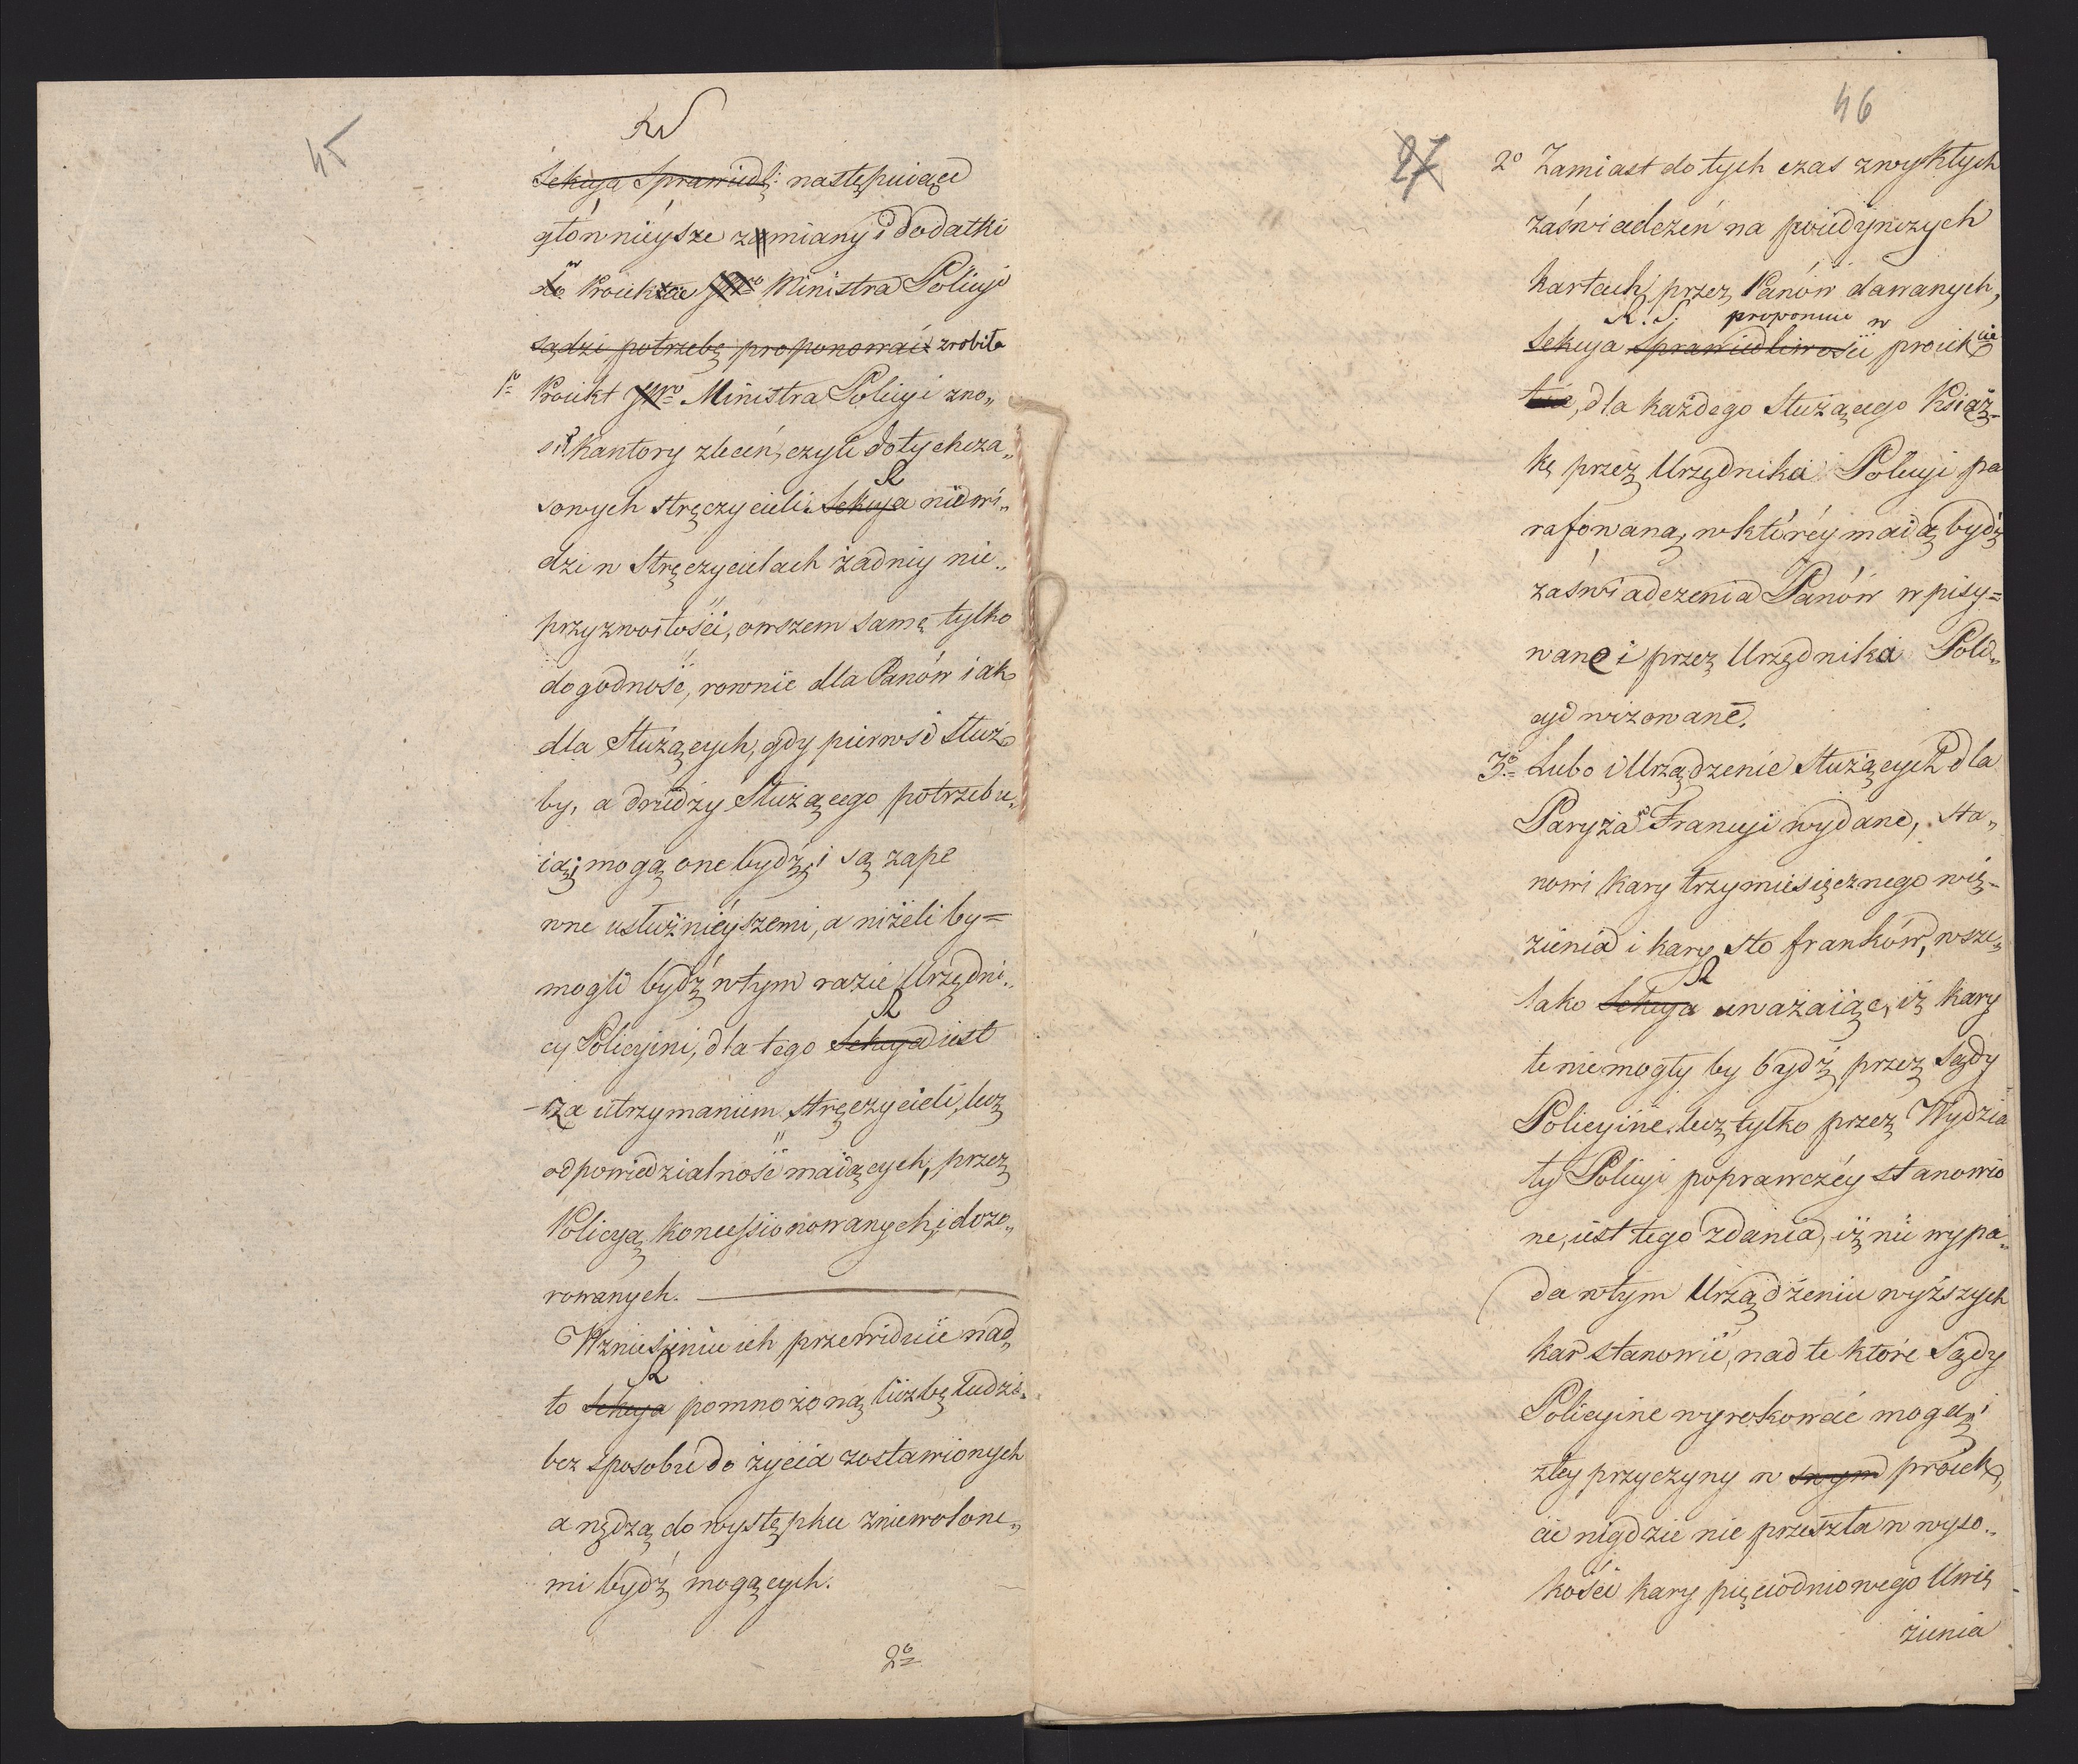 45
Sekcya Sprawiedl: następuiące
głównieysze zamiany i dodatki
do w Proiekcie JWo Ministra Policyi
sądzi potrzebę proponować zrobiła
1o Proiekt JWo Ministra Policyi zno„
si kantory zleceń, czyli dotychcza„
sowych stręczycieli. Sekcya R nie wi„
dzi w Stręczycielach żadney nie„
przyzwoitości, owszem samę tylko
dogodność, rownie dla Panów iak
dla Służących, gdy pierwsi Służ
by, a drudzy Służącego potrzebu„
ią; mogą one bydź, i są zape
wne usłużnieyszemi, a niżeli by=
mogli bydź w tym razie Urzędni„
cy Policyini, dla tego Sekcya R iest
za utrzymaniem stręczycieli, lecz
odpowiedzialność maiących, przez
Policyą koncessionowanych, i dozo„
rowanych.
W zniesieniu ich przewiduie nad
to Sekcya R pomnożoną liczbę ludzi
bez sposobu do życia zostawionych
a nędzą do występku zniewolone„
mi bydź mogących.
2o
46
27
2o Zamiast dotych czas zwykłych
zaświadczeń na poiedynczych
kartach przez Panów dawanych,
R. S. proponuie w
Sekcya Sprawiedliwości proiekcie
cie, dla każdego Służącego Książ=
kę przez Urzędnika Policyi pa
rafowaną, w któréy maią bydź
zaświadczenia Panów wpisy=
wane i przez Urzędnika Poli„
cyi wizowane.
3o Lubo i Urządzenie Służących dla
Paryża i Francyi wydane, sta„
nowi kary trzymiesięcznego wię=
zienia i kary sto franków, wsze„
lako Sekcya R uważaiąc, iż kary
te niemogły by bydź przez Sądy
Policyine, lecz tylko przez Wydzia
ły Policyi poprawczéy stanowio
ne, iest tego zdania, iż nie wypa„
da w tym Urządzeniu wyższych
kar stanowić, nad te które Sądy
Policyine wyrokować mogą, i
ztey przyczyny w swym proiek„
cie nigdzie nie przeszła w wyso„
kości kary pięciodniowego Uwię
zienia